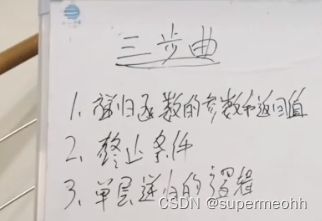 三步曲
1、递归函数的参数和返回值
2、终止条件
3、单层递归的逻辑
CSDN @supermeohh